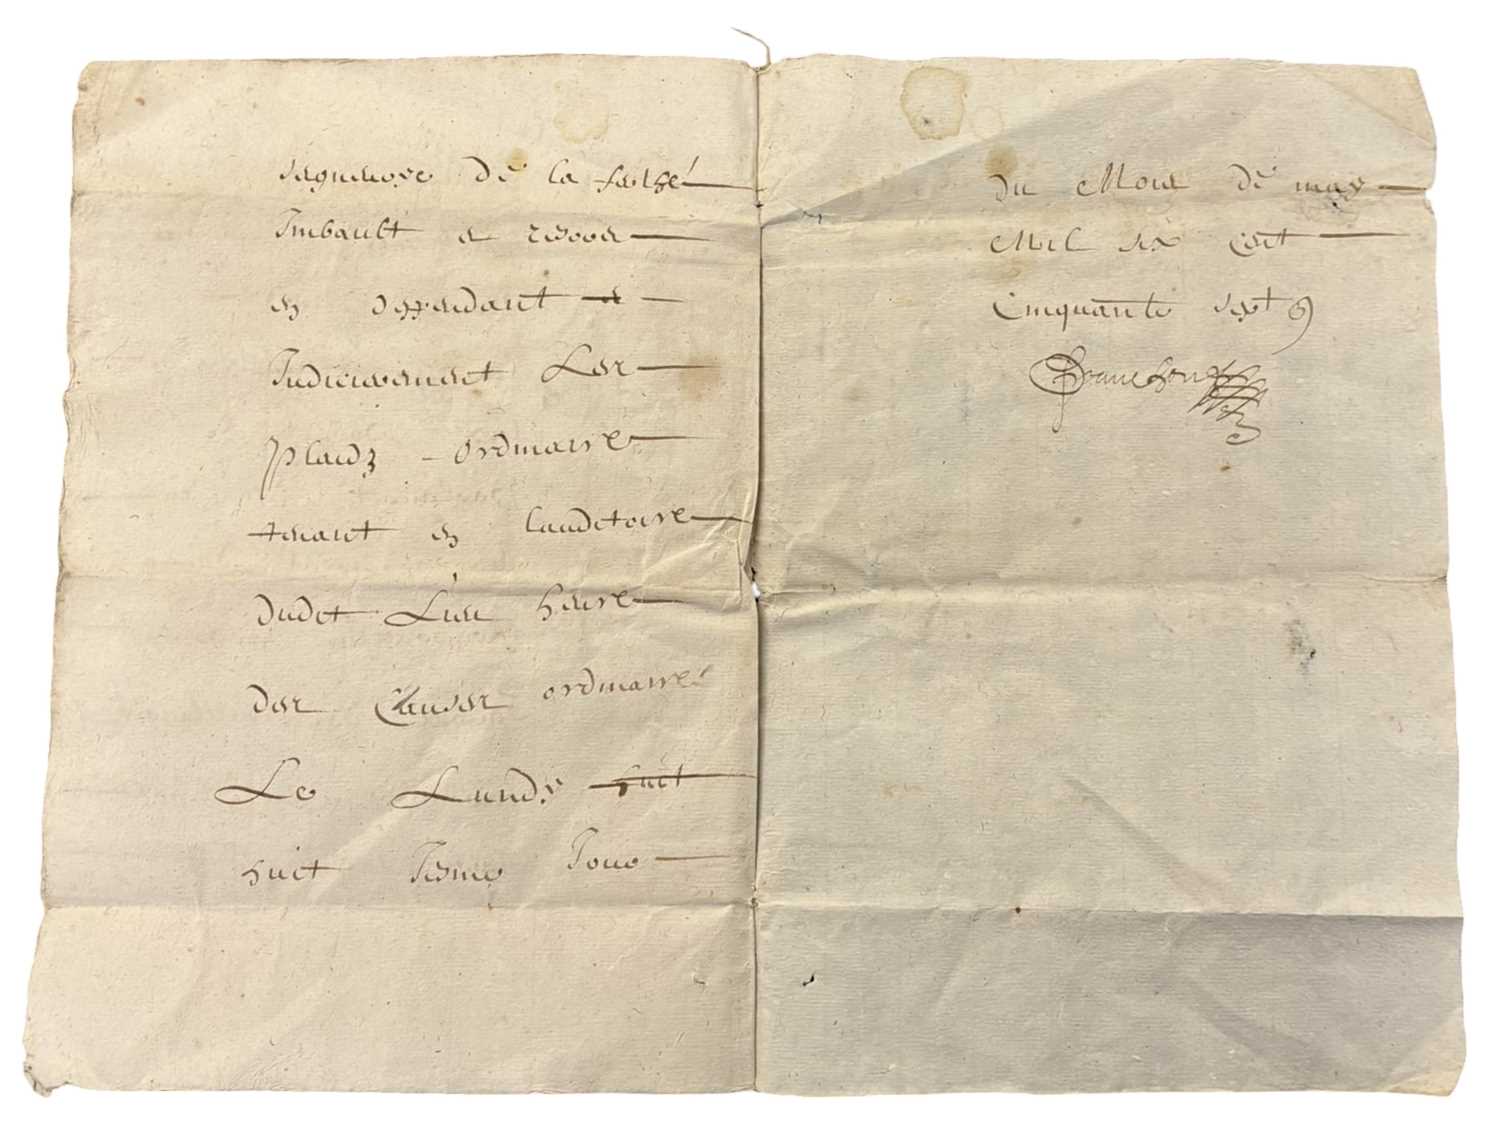 seigneurye de la faché
Imbault a
en deffendant
Judicierement Les
plaidz ordinaire
tenant en lauditoire
dudit Lieu heure
des Causes ordinaire
Le Lundy huit
huit Iesme Jour
du Mois de may
Mil six cent
Cinquante sept